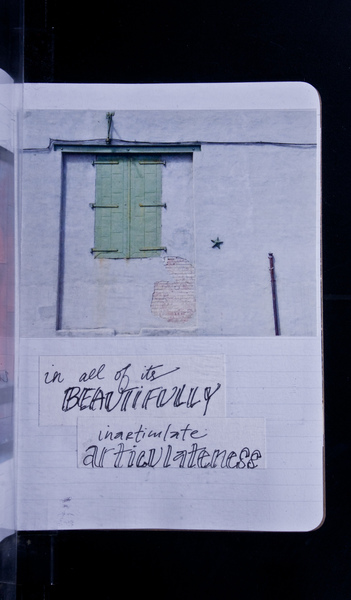 in all of its
BEAUTIFULLY
inarticulate
articulateness